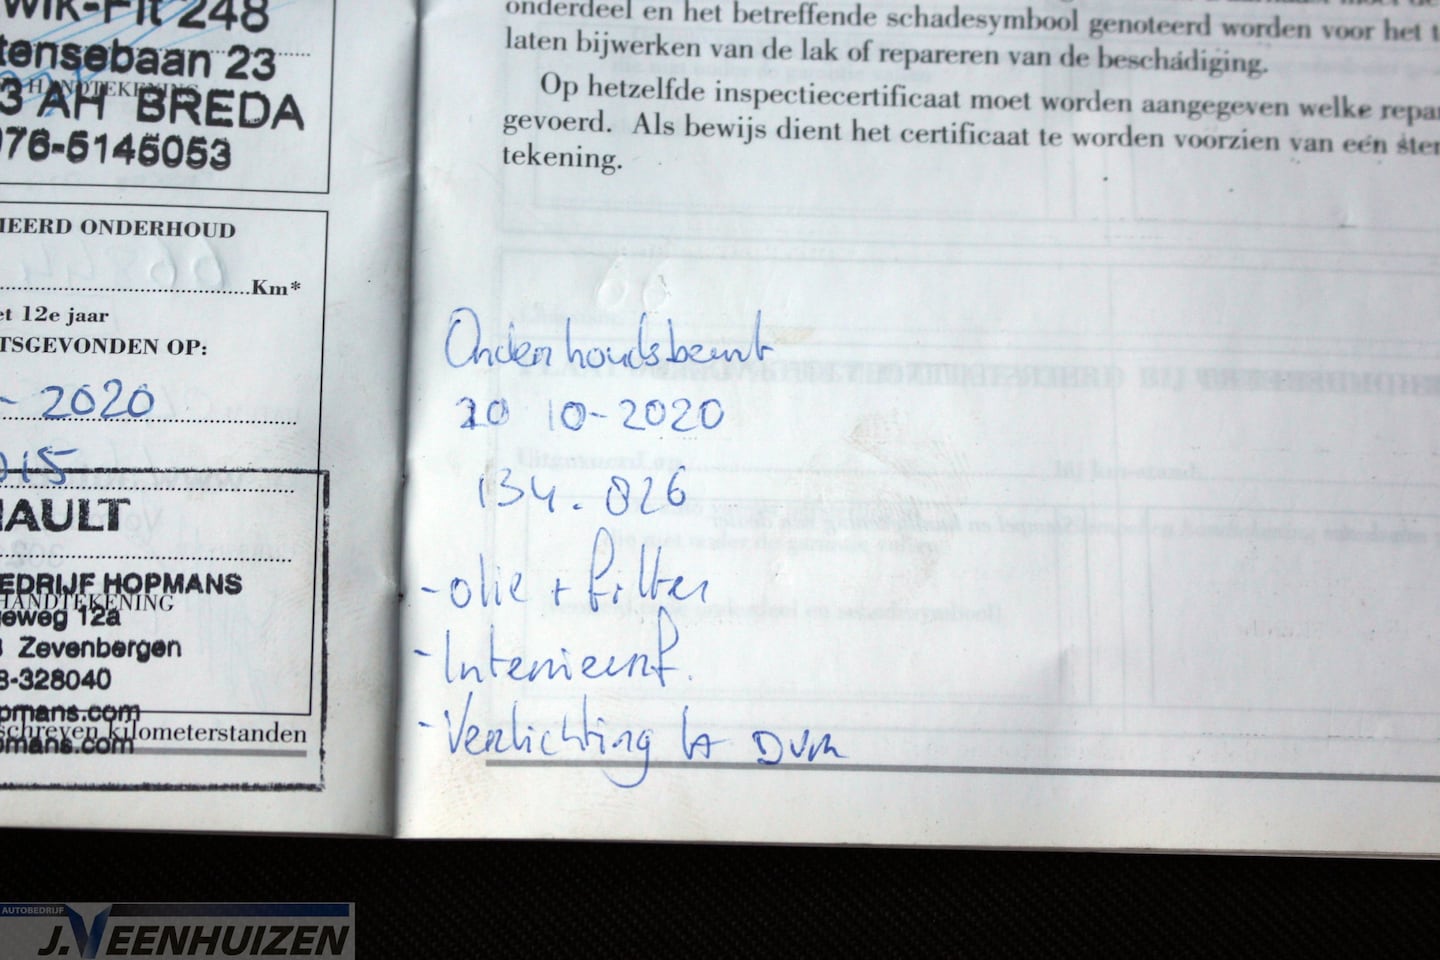 wik-Fit 248
tensebaan 23
HANDTEKENING
3 AH BREDA
076-5145053
MEERD ONDERHOUD
Km*
et 12e jaar
TSGEVONDEN OP:
- 2020
015
AULT
EDRIJF HOPMANS
HANDTEKENING
geweg 12a
Zevenbergen
8-328040
pmans.com
schreven kilometerstanden
omans.com
onderdeel en het betreffende schadesymbool genoteerd worden voor het
laten bijwerken van de lak of repareren van de beschadiging.
Op hetzelfde inspectiecertificaat moet worden aangegeven welke repa
gevoerd. Als bewijs dient het certificaat te worden voorzien van een stem
tekening.
Onderhoudsbeurt
20 10-2020
134.826
- olie + filter
- Interieurf.
- Verlichting DVM
AUTOBEDRIJF
J.VEENHUIZEN